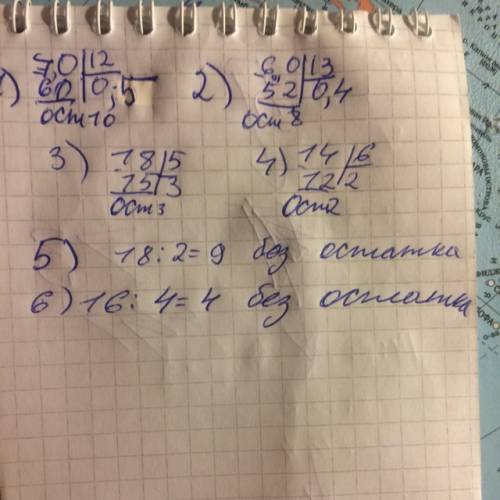 1) 7,0 | 12 2) 6,0 | 13
60 | 0,5 52 | 0,4
ост 10 ост 8
3) 18 | 5 4) 14 | 6
15 | 3 12 | 2
ост 3 ост 2
5) 18 : 2 = 9 без остатка
6) 16 : 4 = 4 без остатка